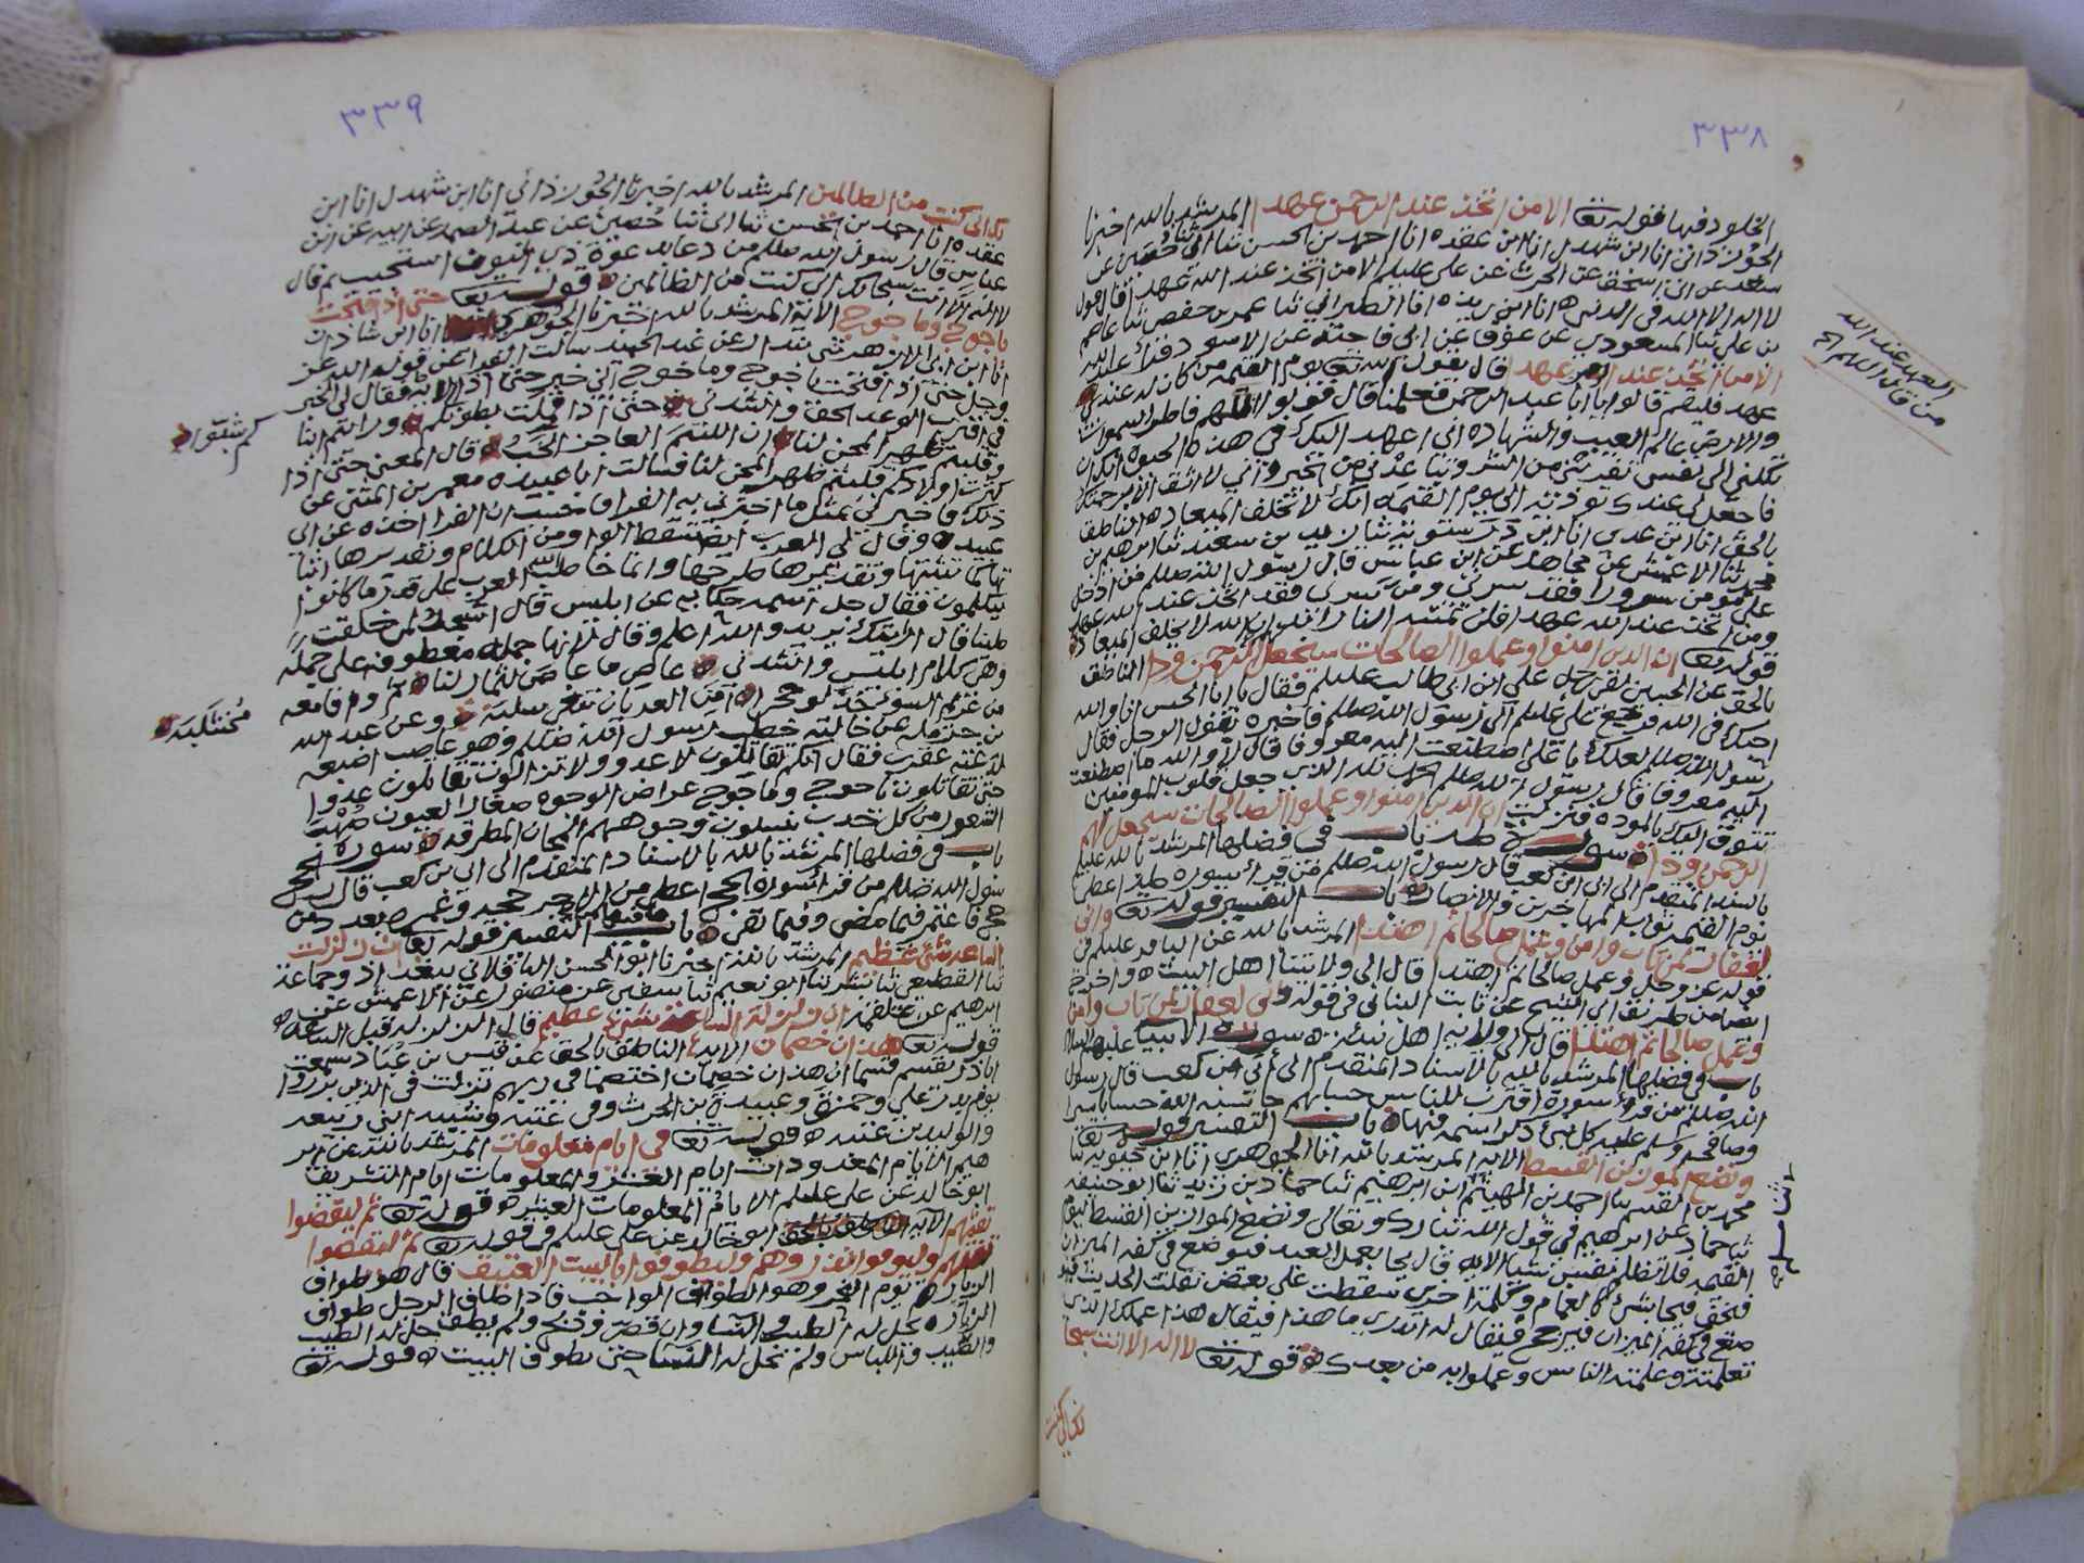 ٣٣٨
الخلود فيها قوله تع الا من اتخذ عند الرحمن عهدا المرشد بالله اخبرنا
الجوزذاني انا ابن شهدل انا ابن عقده انا احمد بن الحسن ثنا ابي ثنا حصين عن
سعد عن ابي اسحق عن الحرث عن علي عليلم الا من اتخذ عند الله عهدا قال قول
لا اله الا الله في الدنيا انا ابن ريذه انا الطبراني ثنا عمر بن حفص ثنا عاصم
بن علي ثنا المسعودي عن عوف عن ابي فاختة عن الاسود قرأ عبد الله
الا من اتخذ عند الرحمن عهدا قال يقول الله تع يوم القيمه من كان له عندي
عهد فليقم قالوا يا ابا عبد الرحمن فعلمنا قال قولوا اللهم فاطر السموات
والارض عالم الغيب والشهاده اني اعهد اليك في هذه الحيوه انك ان
تكلني الى نفسي تقربني من الشر وتباعدني من الخير واني لا اثق الا برحمتك
فاجعل لي عندك تؤديه الي يوم القيمه انك لا تخلف الميعاد الناطق
بالحق انا ابن عدي انا ابن درستويه ثنا بن سعد ثنا ابرهيم بن
محمد ثنا الاعمش عن مجاهد عن ابن عباس قال رسول الله صللم من ادخل
على مؤمن سرورا فقد سرني ومن سرني فقد اتخذ عند الله عهدا
ومن اتخذ عند الله عهدا فلن تمسه النار ابدا ان الله لا يخلف الميعاد
قوله تع ان الذين امنوا وعملوا الصالحات سيجعل لهم الرحمن ودا الناطق
بالحق عن الحسين لقي رجل علي ابن ابي طالب عليلم فقال يا ابا الحسن انا والله
احبك في الله فرجع علي عليلم الى رسول الله صللم فاخبره بقول الرجل فقال
رسول الله صللم لعلك يا علي اصطنعت اليه معروفا قال لا والله ما اصطنعت
اليه معروفا فقال رسول الله صللم الحمد لله الذي جعل قلوب المؤمنين
تتوق اليك بالموده فنزلت ان الذين امنوا وعملوا الصالحات سيجعل لهم
الرحمن ودا سورة طه باب في فضلها المرشد بالله عليلم
بالسند المتقدم الى ابي ابن كعب قال رسول الله صللم من قرأ سورة طه اعطي
يوم القيمه ثواب المهاجرين والانصار باب التفسير قوله تع واني
لغفار لمن تاب وامن وعمل صالحا ثم اهتدا المرشد بالله عن الباقر عليلم في
قوله عز وجل وعمل صالحا ثم اهتدا قال الى ولايتنا اهل البيت واخرج
ايضا من طريق ابي الشيخ عن ثابت البناني في قوله واني لغفار لمن تاب وامن
وعمل صالحا ثم اهتدا قال الى ولاية اهل بيته سورة الانبيا عليهم السلام
باب في فضلها المرشد بالله بالاسناد المتقدم الى ابي ابن كعب قال رسول
الله صللم من قرأ سورة اقترب للناس حسابهم حاسبه الله حسابا يسيرا
وصافحه وسلم عليه كل نبي ذكر اسمه فيها باب التفسير قوله تع
ونضع الموازين القسط الايه المرشد بالله انا الجوهري انا ابن حيويه ثنا
محمد بن القسم ثنا احمد بن الهيثم ابن ابرهيم ثنا حماد بن زيد ثنا ابو حنيفه
ثنا حماد عن ابرهيم في قول الله تبارك وتعالى ونضع الموازين القسط ليوم
القيمه فلا تظلم نفس شيا الايه قال يجا بعمل العبد فيوضع في كفه الميزان
فتخف فيجا بشئ كالغمام وكلمة اخرى سقطت على بعض نقلت الحديث فيو
ضع في كفه الميزان فيرجح فيقال له اتدري ما هذا فيقال هذا عملك الذي
تعلمته وعلمته الناس وعملوا به من بعدك قوله تع لا اله الا انت سبحا
نك اني كنت
العهد عند الله
من قال اللهم الخ
٣٣٩
نك اني كنت من الظالمين المرشد بالله اخبرنا الجوزذاني انا ابن شهدل انا ابن
عقده انا احمد بن الحسن ثنا ابي ثنا حصين عن عبد الصمد عن ابيه عن ابن
عباس قال رسول الله صللم من دعا بدعوة ذي النون استجيب له قال
لا اله الا انت سبحانك اني كنت من الظالمين قوله تع حتى اذا فتحت
ياجوج وماجوج الاية المرشد بالله اخبرنا الجوهري انا ابن شاذان
انا ابن ابي الازهر ثني بندار عن عبد الحميد سالت الفرا عن قوله الله عز
وجل حتى اذا فتحت ياجوج وماجوج اين خبر حتى اذا الاية فقال لي الخبر
في اقترب الوعد الحق وانشدني حتى اذا قملت بطونكم ورايتم ابنا
كم شبوا
وقلبتم ظهر المجن لنا ان اللئيم العاجز الخب قال المعنى حتى اذا
كبرت اولادكم قلبتم ظهر المجن لنا فسالت ابا عبيده معمر بن المثنى عن
ذلك فاخبرني بمثل ما اخبرني به الفرا فحسبت ان الفرا اخذه عن ابي
عبيده وقال لي العرب ايضا تسقط الواو من الكلام وتقديرها اثبا
تها كما تثبتها وتقديرها طرحها وانما خاطب الله العرب على قدر ما كانوا
يتكلمون فقال جل اسمه حكاية عن ابليس قال ااسجد لمن خلقت
طينا قال ارايتك يريد والله اعلم وقال لانها جملة معطوفه على جملة
وهي كلام ابليس وانشدني
مختلبة
بن حرمله عن خالته خطب رسول الله صللم وهو عاصب اصبعه
لدغته عقرب فقال انكم تقاتلون لا عدو ولا تزالون تقاتلون عدوا
حتى تقاتلون ياجوج وماجوج عراض الوجوه صغار العيون صهب
الشعور من كل حدب ينسلون وجوههم المجان المطرقه سورة الحج
باب في فضلها المرشد بالله بالاسناد المتقدم الى ابي بن كعب قال رسول
سول الله صللم من قرأ سورة الحج اعطي من الاجر كحجه وعمره بعدد من
حج واعتمر فيما مضى وفيما بقي باب التفسير قوله تع ان زلزلت
الساعة شئ عظيم المرشد بالله اخبرنا ابو الحسن الباقلاني ببغداد وجماعة
ثنا القطيعي ثنا بشر ثنا ابو نعيم ثنا سفين عن منصور عن الاعمش عن
ابرهيم عن علقمة ان زلزلة الساعة شئ عظيم قال الزلزله قبل الساعه
قوله تع هذان خصمان الايه الناطق بالحق عن قيس بن عباد سمعت
اباذر يقسم قسما ان هذان خصمان اختصما في ربهم نزلت في الذين برزوا
يوم بدر علي وحمزة وعبيدة بن الحرث وفي عتبة وشيبه ابني ربيعه
والوليد بن عتبه قوله تع في ايام معلومات المرشد بالله عن ابر
هيم الايام المعدودات ايام العشر والمعلومات ايام التشريق
ابو خالد عن علي عليلم الايام المعلومات العشر قوله تع ثم ليقضوا
تفثهم الايه ابو خالد عن علي عليلم في قوله تع ثم ليقضوا
تفثهم وليوفوا نذورهم وليطوفوا بالبيت العتيق قال هو طواف
الزياره يوم النحر وهو الطواف الواجب فاذا طاف الرجل طواف
الزياره حل له الطيب والنسا وان قصر وذبح ولم يطف حل له الطيب
والطيب واللباس ولم تحل له النسا حتى يطوف البيت قوله تع